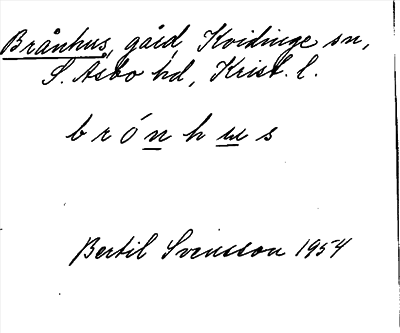 Brånhus, gård, Kvidinge sn,
S. Åsbo hd, Krist. l.
b r ó n h u s
Bertil Svensson 1954